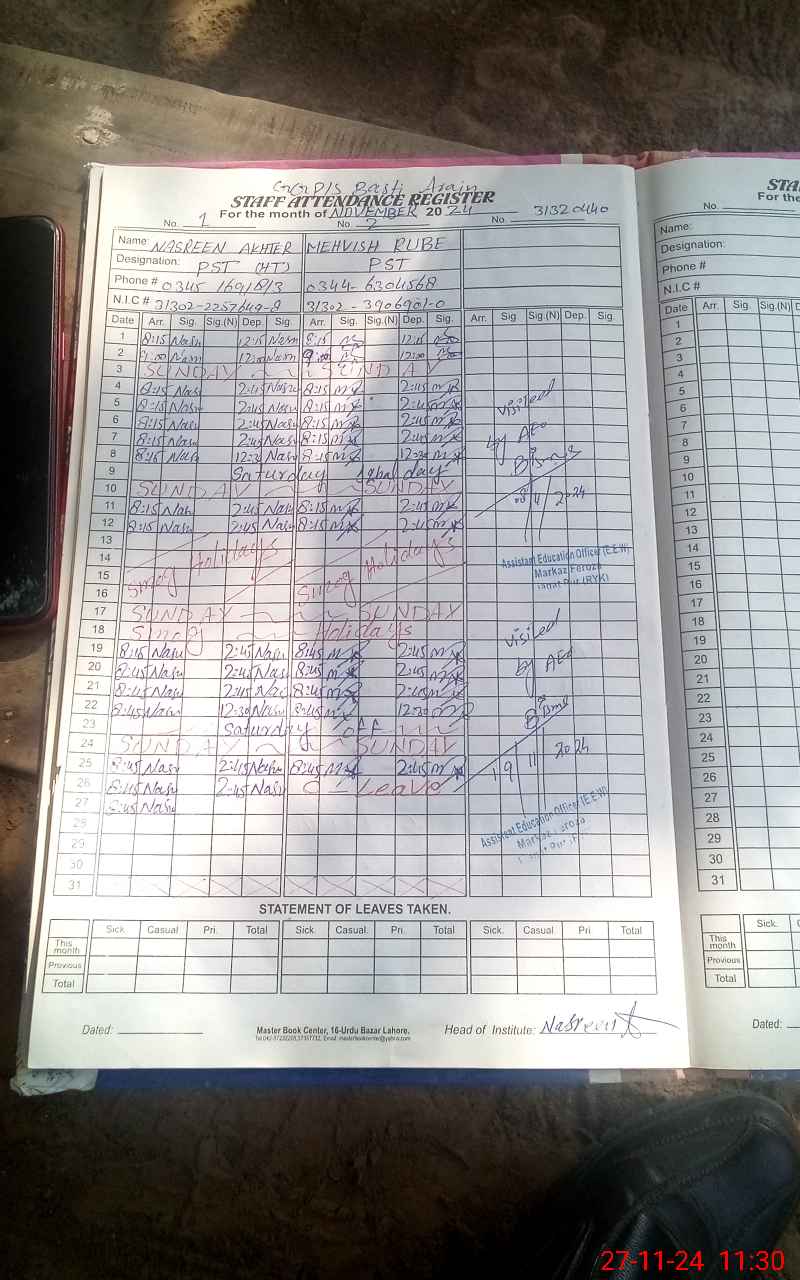 GGPS Basti Arain
STAFF ATTENDANCE REGISTER
For the month of NOVEMBER 2024
No. 1 No. 2 No. 31320440
Name: NASREEN AKHTER MEHVISH RUBE
Designation: PST (HT) PST
Phone # 0345 1691813 0344-6304568
N.I.C # 31302-2257649-8 31302-3906901-0
Date Arr. Sig. Sig.(N) Dep. Sig. Arr. Sig. Sig.(N) Dep. Sig. Arr. Sig. Sig.(N) Dep. Sig.
1 8:15 Nasr 12:15 Nasr 8:15 12:15
2 9:00 Nasr 12:00 Nasr 9:00 12:00
3 SUNDAY SUNDAY
4 8:15 Nasr 2:45 Nasr 8:15 2:45
5 8:15 Nasr 2:45 Nasr 8:15 2:45
6 8:15 Nasr 2:45 Nasr 8:15 2:45
7 8:15 Nasr 2:45 Nasr 8:15 2:45
8 8:15 Nasr 12:30 Nasr 8:15 12:30
Visited
by AEO
9 Saturday Iqbal day
10 SUNDAY SUNDAY
11 8:15 Nasr 2:45 Nasr 8:15 2:45
12 8:15 Nasr 2:45 Nasr 8:15 2:45
2024
13
14 Smog Holidays Smog Holidays
15
16
Assistant Education Officer (E.E.W)
Markaz Feroza
(RYK)
17 SUNDAY SUNDAY
18 Smog Holidays
19 8:45 Nasr 2:45 Nasr 8:45 2:45
20 8:45 Nasr 2:45 Nasr 8:45 2:45
21 8:45 Nasr 2:45 Nasr 8:45 2:45
22 8:45 Nasr 12:30 Nasr 8:45 12:30
Visited
by AEO
23 Saturday off
24 SUNDAY SUNDAY
25 8:45 Nasr 2:45 Nasr 8:45 2:45
26 8:45 Nasr 2:45 Nasr C - Leave
27 8:45 Nasr
19 11 2024
28
29
30
31
Assistant Education Officer (E.E.W)
Markaz Feroza
STATEMENT OF LEAVES TAKEN.
Sick. Casual Pri. Total Sick. Casual. Pri. Total Sick. Casual. Pri. Total
This month
Previous
Total
Dated:
Master Book Center, 16-Urdu Bazar Lahore.
Head of Institute: Nasreen
STA
For the
No.
Name:
Designation:
Phone #
N.I.C #
Date Arr. Sig. Sig.(N)
1
2
3
4
5
6
7
8
9
10
11
12
13
14
15
16
17
18
19
20
21
22
23
24
25
26
27
28
29
30
31
Sick.
This month
Previous
Total
Dated:
27-11-24 11:30